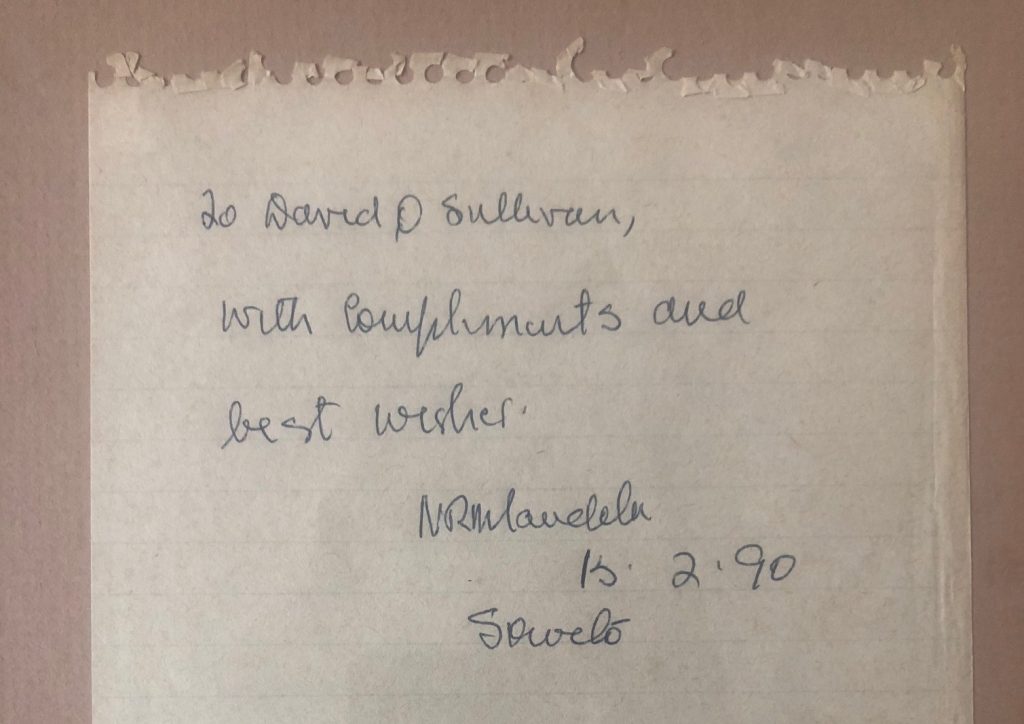 To David O Sullivan,
with compliments and
best wishes.
NRMandela
15. 2.90
Soweto